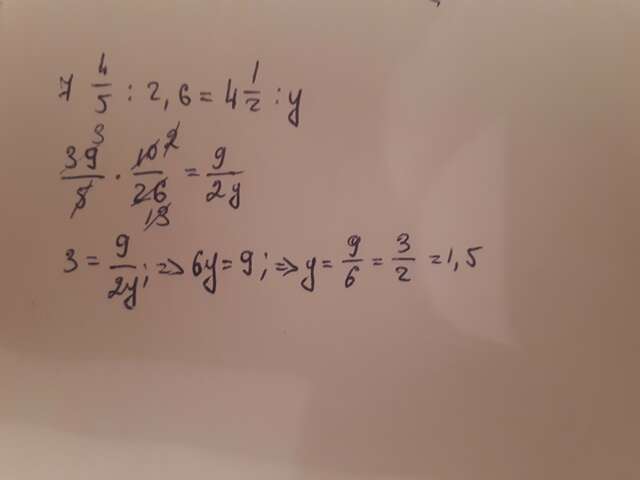 7 4/5 : 2,6 = 4 1/2 : y
39/5 3 · 10/26 2 13 = 9/2y
3 = 9/2y ; => 6y = 9 ; => y = 9/6 = 3/2 = 1,5